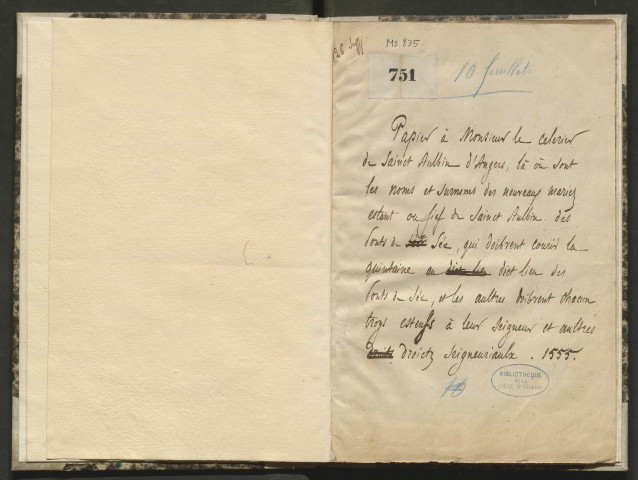 Ms 835
751
10 feuillets
Papier à Monsieur le celerier
de Sainct Aulbin d'Angers, là où sont
les noms et surnoms des nouveaux mariez
estant ou fief de Sainct Aulbin des
Ponts de Sée, qui doibvent courir la
quintaine au dict lieu des
Ponts de Sée, et les aultres doibvent chacun
troys esteufs à leur Seigneur et aultres
droictz Seigneuriaulx. 1555.
BIBLIOTHÈQUE
DE LA
VILLE D'ANGERS